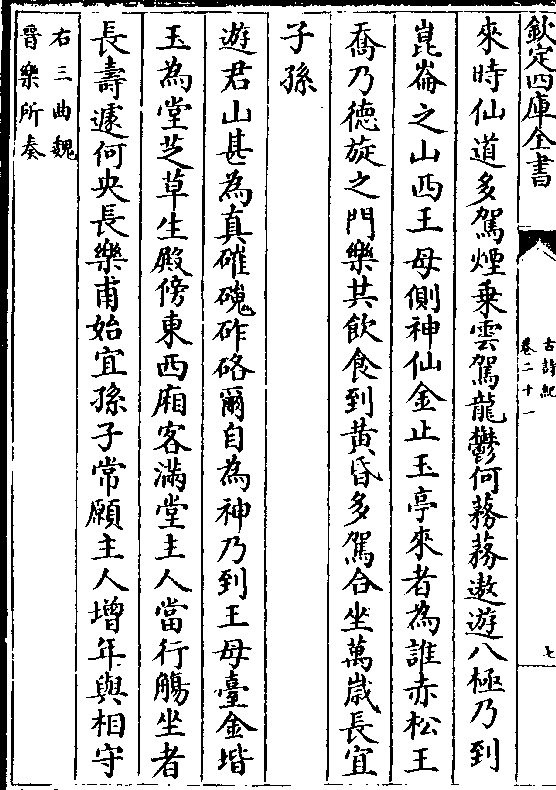 欽定四庫全書
古詩紀
卷二十一
七
來時仙道多駕煙乗雲駕龍鬱何蓩蓩遨遊八極乃到
崑崙之山西王母側神仙金止玉亭來者為誰赤松王
喬乃德旋之門樂共飲食到黄昏多駕合坐萬歳長宜
子孫
遊君山甚為真磪磈砟硌爾自為神乃到王母臺金堦
玉為堂芝草生殿傍東西廂客滿堂主人當行觴坐者
長壽遽何央長樂甫始宜孫子常願主人增年與相守
右三曲魏
晉樂所奏